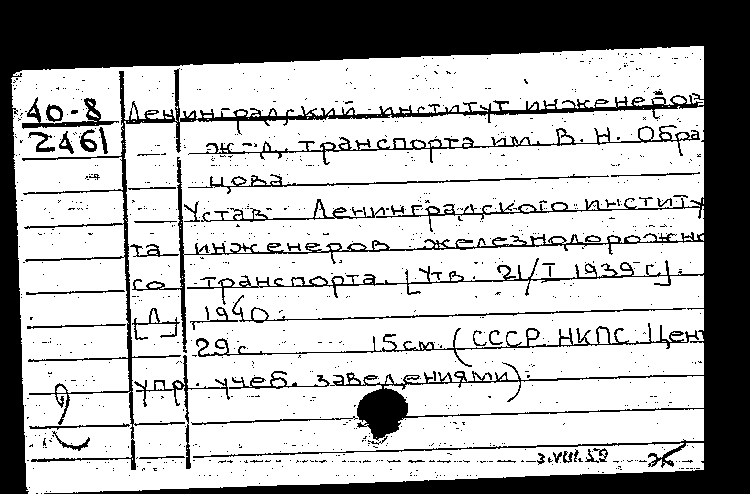 40-8
2461
Ленинградский институт инженеров
ж-д. транспорта им. В. Н. Обра
цова
Устав Ленинградского институ
та инженеров железнодорожно
го транспорта. [Утв. 21/I 1939 г.].
[Л.], 1940.
29 с. 15 см. (СССР НКПС Цент
упр. учеб. заведениями).
3.VIII.59